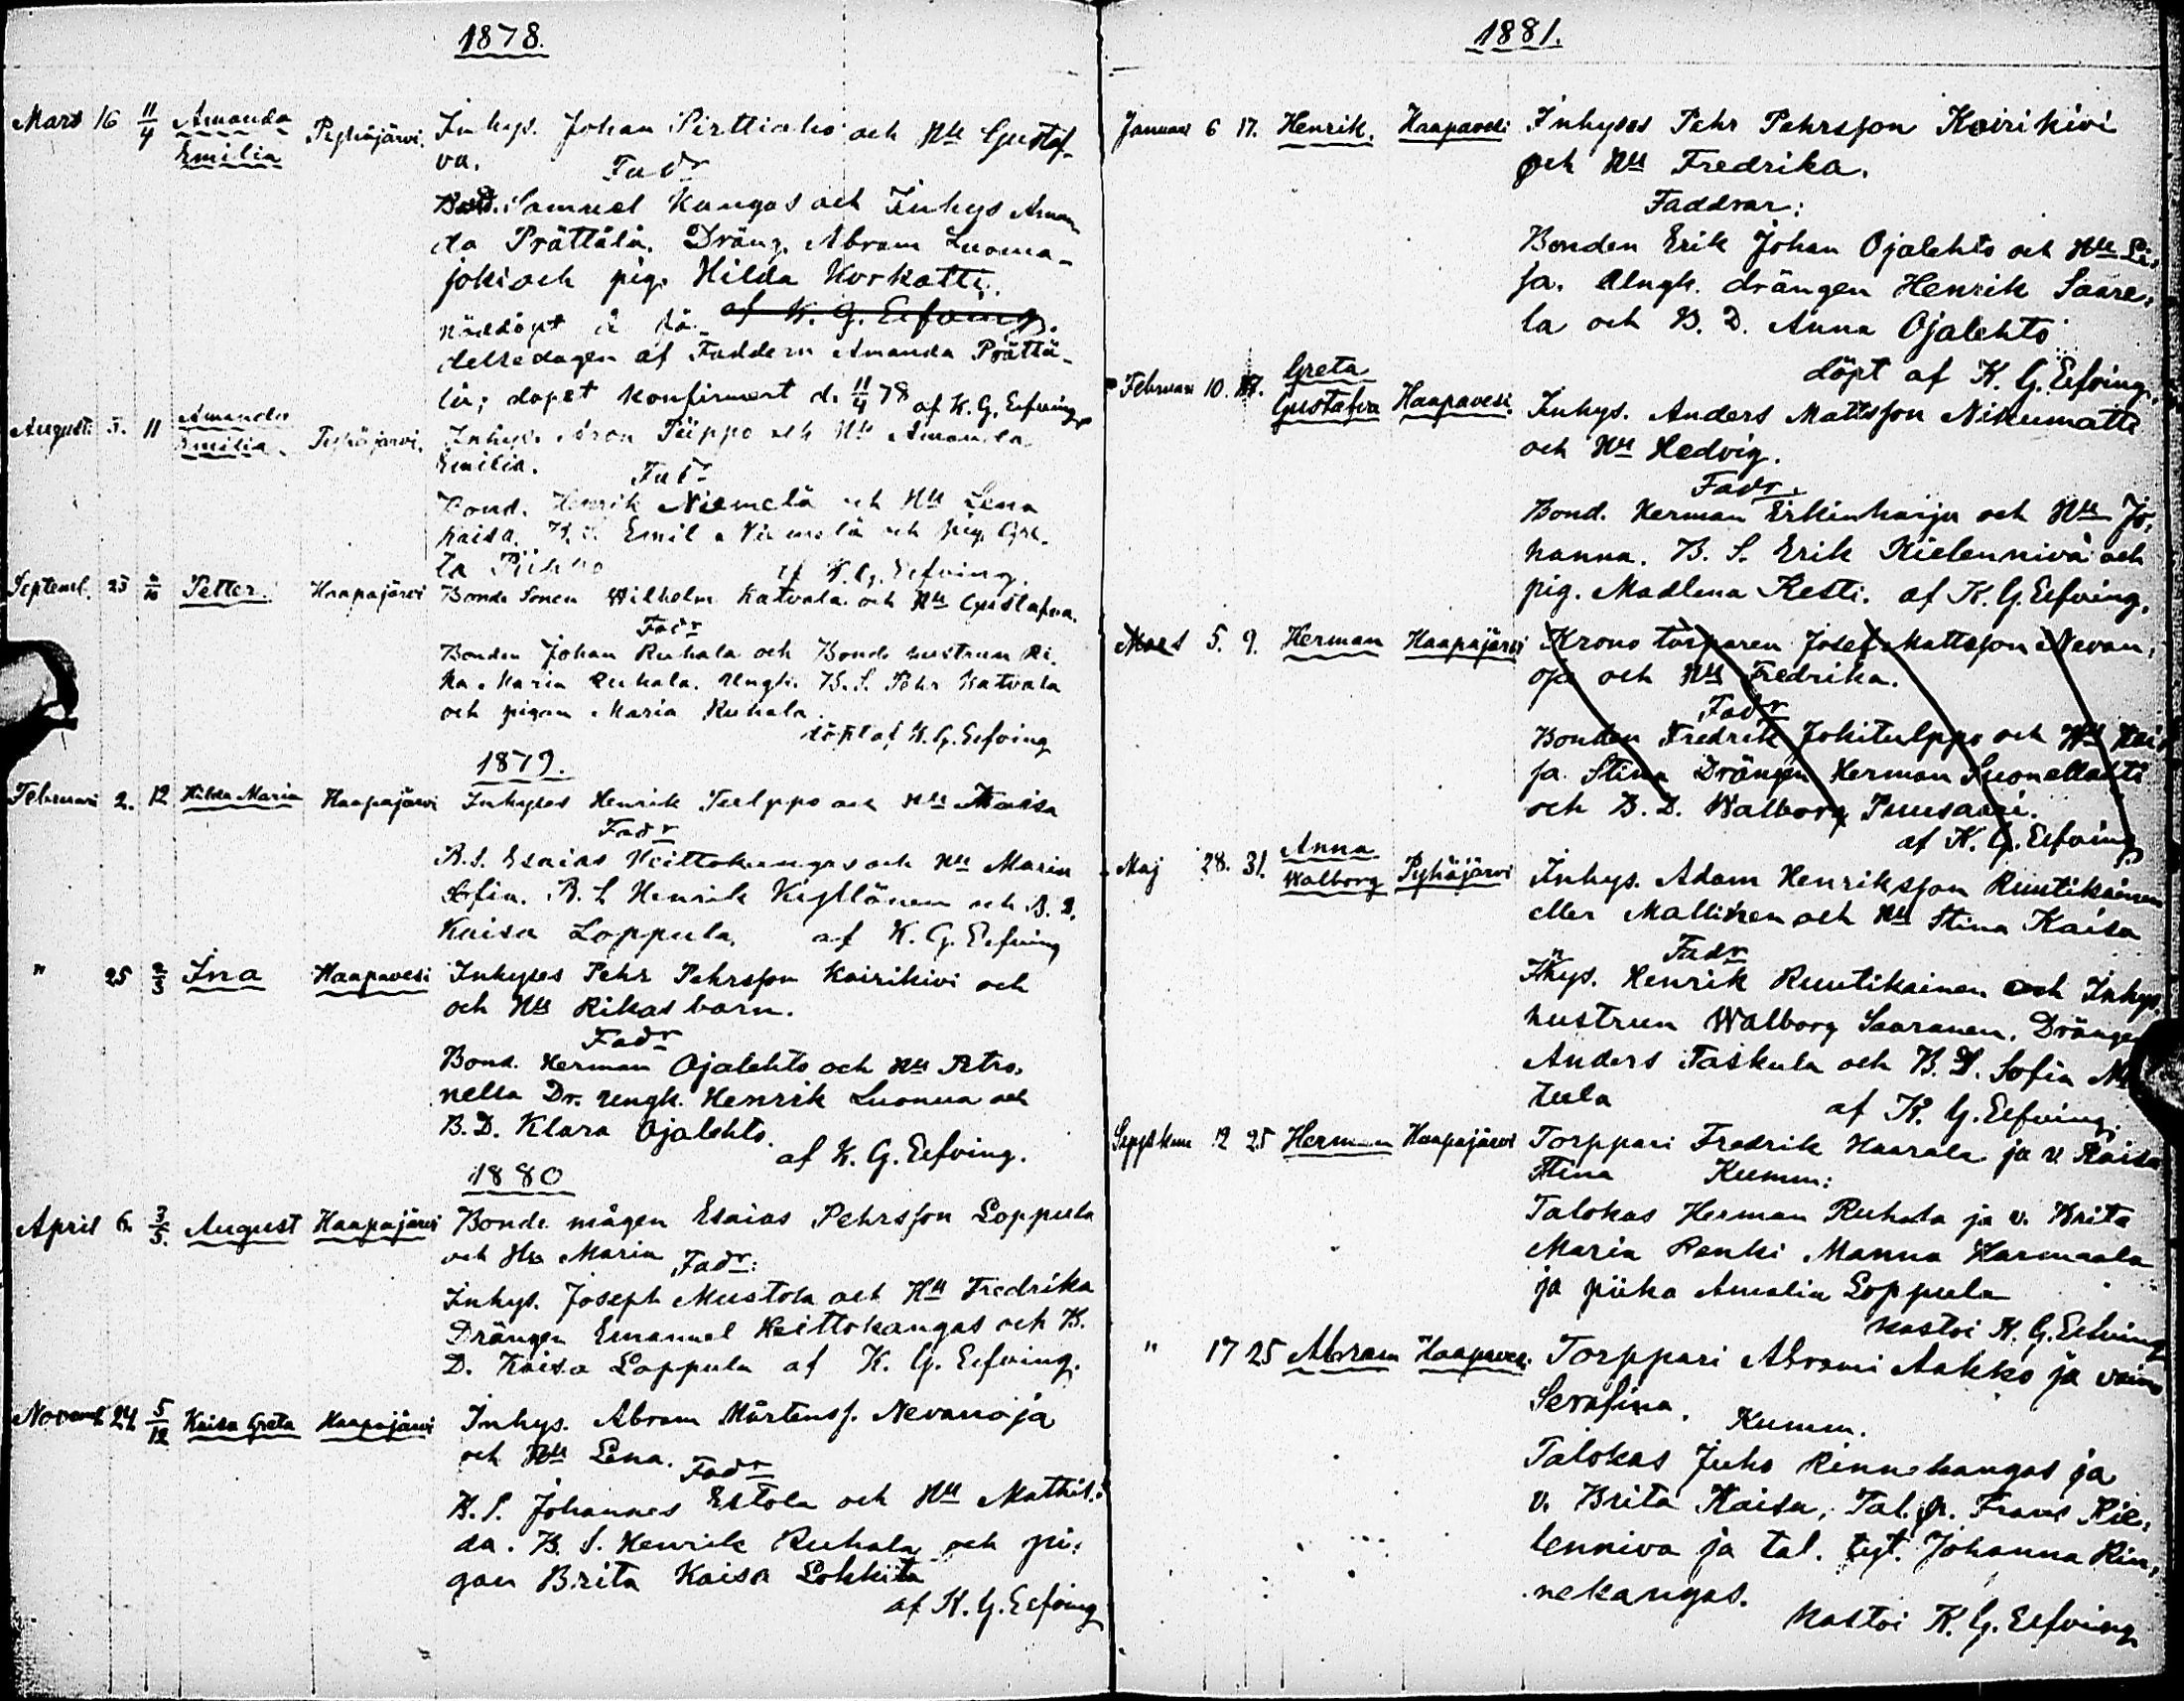 1878.
Mars 16 11/4 Amanda Emilia Pyhäjärvi. Inhys. Johan Pirttiaho och Hu Gustaf-
va.
Fadr
Bond. Samuel Kangas och Inhys Aman
da Prättälä. Dräng. Abram Luoma-
joki och pig. Hilda Korkatti.
nöddöpt å fö- af K. G. Eefving.
delsedagen af Faddern Amanda Prättä-
lä; dopet konfirmert d. 11/4 78 af K. G. Eefving
August. 5. 11 Amanda Emilia. Pyhäjärvi. Inhys. Aron Piippo och Hu Amanda
Emilia.
Fadr
Bond. Henrik Niemelä och Hu Lena
Kaisa. B. S. Emil Niemelä och pig. Gre-
ta af K. G. Eefving.
Septemb. 23 6/10 Petter Haapajärvi Bonde Sonen Wilhelm Katvala och Hu Gustafva.
Fadr
Bonden Johan Ruhala och Bonde hustrun
Maria Ruhala. Ungk. B. S. Pehr Katvala
och pigan Maria Ruhala.
döpt af K. G. Eefving
1879.
Februari 2. 12 Hilda Maria Haapajärvi Inhyses Henrik Tulppo och Hu Kaisa
Fadr
B. S. Esaias Keittokangas och Hu Maria
Sofia. B. S. Henrik Kyllönen och B. D.
Kaisa Loppula. af K. G. Eefving
" 25 2/3 Ina Haapavesi Inhyses Pehr Pehrsson Koirikivi och
och Hu Rikas barn.
Fadr
Bond. Herman Ojalehto och Hu Petro-
nella Dr. ungk. Henrik Luonua och
B. D. Klara Ojalehto.
af K. G. Eefving.
1880
April 6. 3/5. August Haapajärvi Bonde mågen Esaias Pehrsson Loppula
och Hu Maria
Fadr:
Inhys. Joseph Mustola och Hu Fredrika
Drängen Emanuel Keittokangas och B.
D. Kaisa Loppula af K. G. Eefving.
Novemb 24 5/12 Kaisa Greta Haapajärvi Inhys. Abram Mårtenss. Nevanoja
och Hu Lena.
Fadr
B. S. Johannes Eskola och Hu Mathil-
da. B. S. Henrik Ruhala och pi-
gan Brita Kaisa Lokkita
af K. G. Eefving
1881.
Januari 6 17. Henrik. Haapavesi Inhyses Pehr Pehrsson Koirikivi
och Hu Fredrika.
Faddrar:
Bonden Erik Johan Ojalehto och Hu Li-
sa. Ungk. drängen Henrik Saare-
la och B. D. Anna Ojalehto
döpt af K. G. Eefving.
Februari 10. 17. Greta Gustafva Haapavesi. Inhys. Anders Mattsson Nikumatti
och Hu Hedvig.
Fadr.
Bond. Herman Erkinharju och Hu Jo-
hanna. B. S. Erik Kielenniva och
pig. Madlena Kesti. af K. G. Eefving.
Mars 5. 9. Herman Haapajärvi Krono torparen Josef Mattsson Nevan-
oja och Hu Fredrika.
Fadr
Bonden Fredrik Jokitulppo och Hu Kai-
sa Stina Drängen Herman Suonellahti
och B. D. Walborg Puusaari.
af K. G. Eefving
Maj 28. 31. Anna Walborg Pyhäjärvi Inhys. Adam Henriksson Ruutikainen
eller Mallinen och Hu Stina Kaisa
Fadr
Inhys. Henrik Ruutikainen och Inhys.
hustrun Walborg Saaranen. Drängen
Anders Taskula och B. D. Sofia
tula af K. G. Eefving.
Syyskuu 12 25 Herman Haapajärvi Torppari Fredrik Haarala ja v. Kaisa
Stina Kumm:
Talokas Herman Ruhala ja v. Brita
Maria Renki Manna Harmaala
ja piika Amalia Loppula
kastoi K. G. Eefving
" 17 25 Abram Haapavesi Torppari Abrami Aakko ja vaimo
Serafina. Kumm.
Talokas Juho Rinnekangas ja
v. Brita Kaisa, Tal. p. Frans Kie-
lenniva ja tal. tyt. Johanna Rin-
nekangas.
kastoi K. G. Eefving